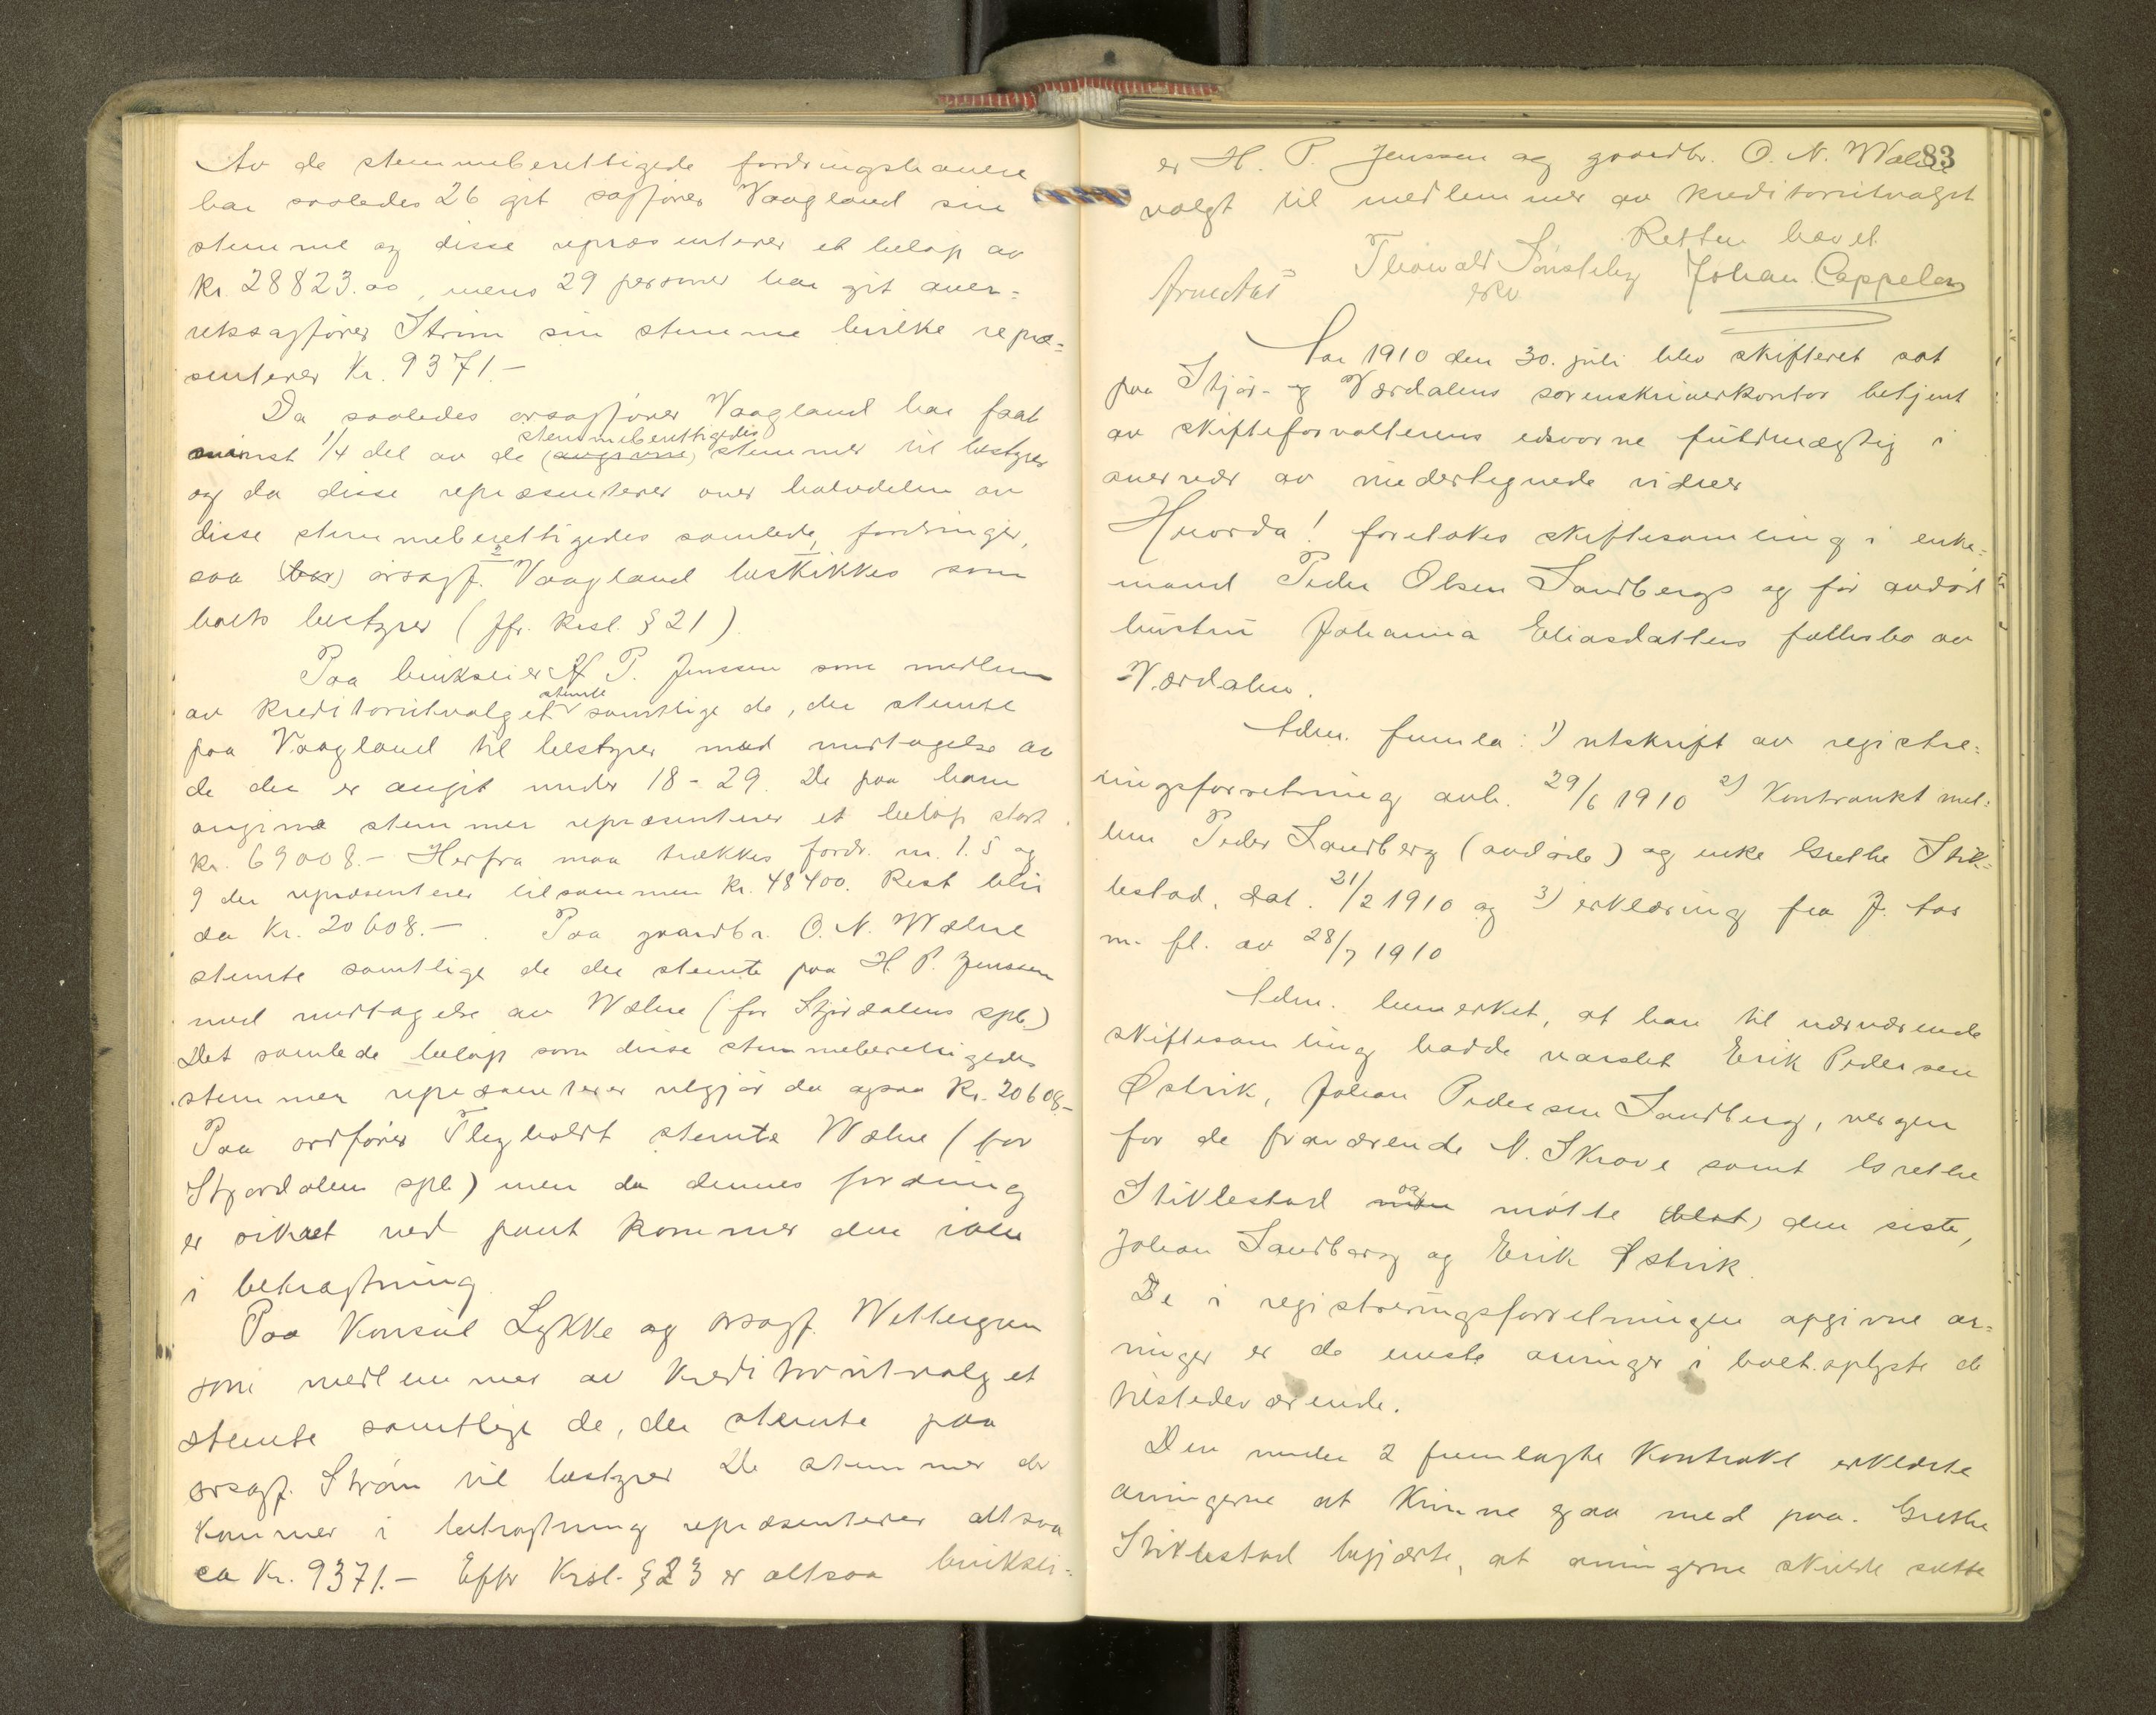 Av de stemmeberettigede fordringshavere
har saaledes 26 git sagfører Vaagland sin
stemme og disse repræsenterer et beløp av
kr. 28823.00, mens 29 personer har git over=
retssagfører Strøm sin stemme hvilke repræ=
senterer Kr. 9371.-
Da saaledes orsagfører Vaagland har faat
stemmeberettigedes
minst 1/4 del av de (avgivne) stemmer til bestyrer
og da disse repræsenterer over halvdelen av
disse stemmeberettigedes samlede fordringer,
saa (bør) orsagf. Vaagland beskikkes som
boets bestyrer (jfr. krsl. § 21).
Paa brukseier H. P. Jenssen som medlem
stemte
av kreditorutvalget samtlige de, der stemte
paa Vaagland til bestyrer med undtagelse av
de der er angit under 18-29. De paa ham
avgivne stemmer repræsenterer et beløp stort
kr. 69008.- Herfra maa trækkes fordr. nr. 1. 5 og
9 der repræsenterer tilsammen kr. 48400. Rest blir
da Kr. 20608.- Paa gaardbr. O. N. Wælne
stemte samtlige de der stemte paa H. P. Jenssen
med undtagelse av Wælne (for Stjørdalens spb.)
Det samlede beløp som disse stemmeberettigedes
stemmer repræsenterer utgjør da ogsaa Kr. 20608.-
Paa ordfører Flegholdt stemte Wælne (for
Stjørdalens spb) men da dennes fordring
er sikret ved pant kommer den ikke
i betragtning.
Paa Konsul Lykke og orsagf. Wettergren
som medlemmer av kreditorutvalget
stemte samtlige de, der stemte paa
orsagf. Strøm til bestyrer De stemmer der
kommer i betragtning repræsenterer altsaa
ca Kr. 9371.- Efter Krsl. § 23 er altsaa bruksei=
83
er H. P. Jenssen og gaardbr. O. N. Wælne
valgt til medlemmer av kreditorutvalget
Retten hævet.
Thorvald Sønsteby Johan Cappelen
Aar 1910 den 30. juli blev skifteret sat
paa Stjør- og Værdalens sorenskriverkontor betjent
av skifteforvalterens edsvorne fuldmægtig i
overvær av undertegnede vidner
Hvorda! foretokes skiftesamling i enke=
mand Peder Olsen Sandbergs og før avdød
hustru Johanna Eliasdatters fællesbo av
Værdalen.
Adm. fremla: 1) utskrift av registre=
ringsforretning avh. 29/6 1910 2) Kontrakt mel=
lem Peder Sandberg (avdøde) og enke Grethe Stik=
lestad, dat. 21/2 1910 og 3) erklæring fra J. Aas
m. fl. av 28/7 1910
Adm. bemerket, at han til nærværende
skiftesamling hadde varslet Erik Pedersen
Østvik, Johan Pedersen Sandberg, vergen
for de fraværende N. Skrove samt Grethe
og
Stiklestad men møtte (blot) den siste,
Johan Sandberg og Erik Østvik.
De i registreringsforretningen opgivne ar=
vinger er de eneste arvinger i boet. oplyste de
tilstedeværende.
Den under 2 fremlagte kontrakt erklærte
arvingerne at kunne gaa med paa. Grethe
Stiklestad begjærte, at arvingerne skulde sætte